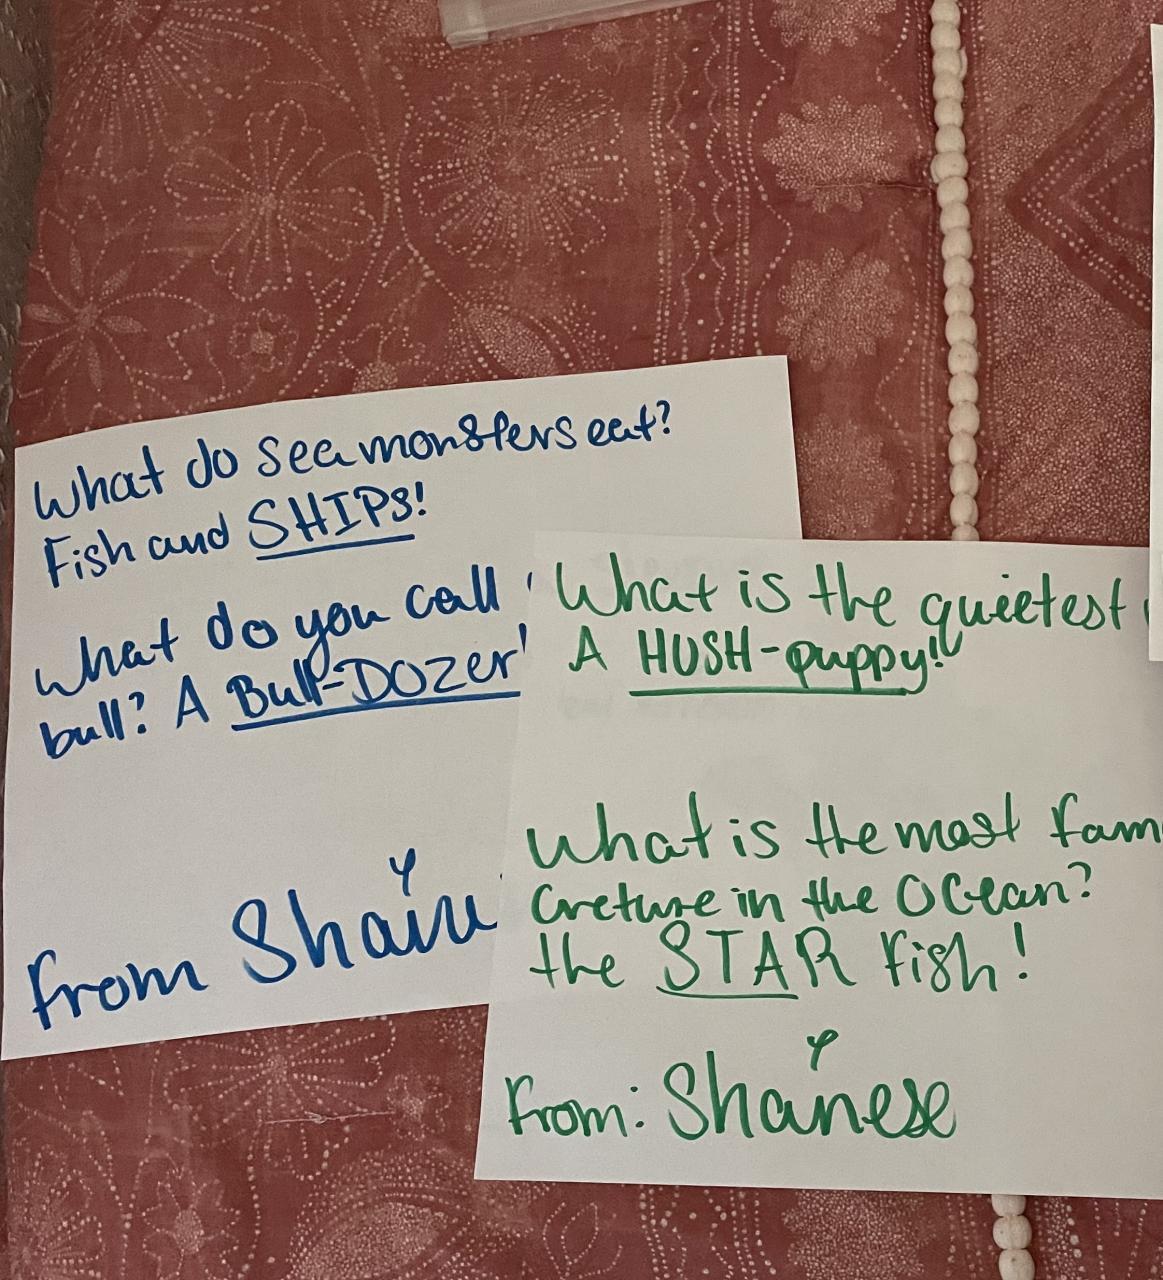 What do sea monsters eat?
Fish and SHIPs!
What do you call
bull? A Bull-DOZer!
From
What is the quietest
A HUSH-puppy!
What is the most
Creture in the OCean?
the STAR Fish!
From: Shanese